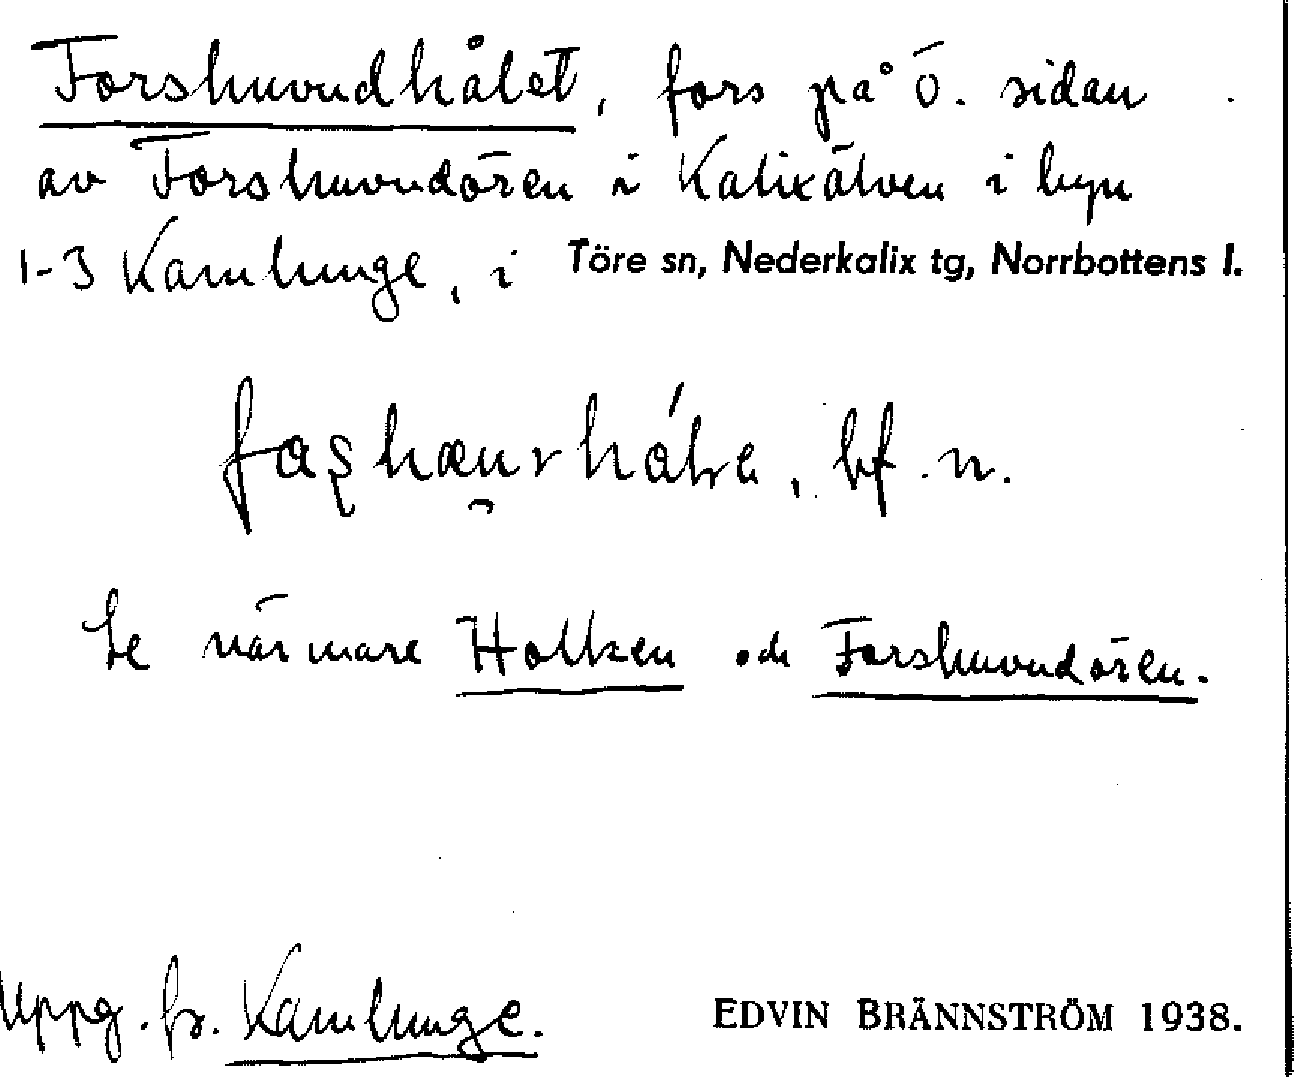 Forshuvudhålet, fors på ö. sidan
av Forshuvudören i Kalixälven i byn
1-3 Kamlunge, i Töre sn, Nederkalix tg, Norrbottens l.
bf. n.
Se närmare Holken och Forshuvudören.
Uppg. fr. Kamlunge. EDVIN BRÄNNSTRÖM 1938.